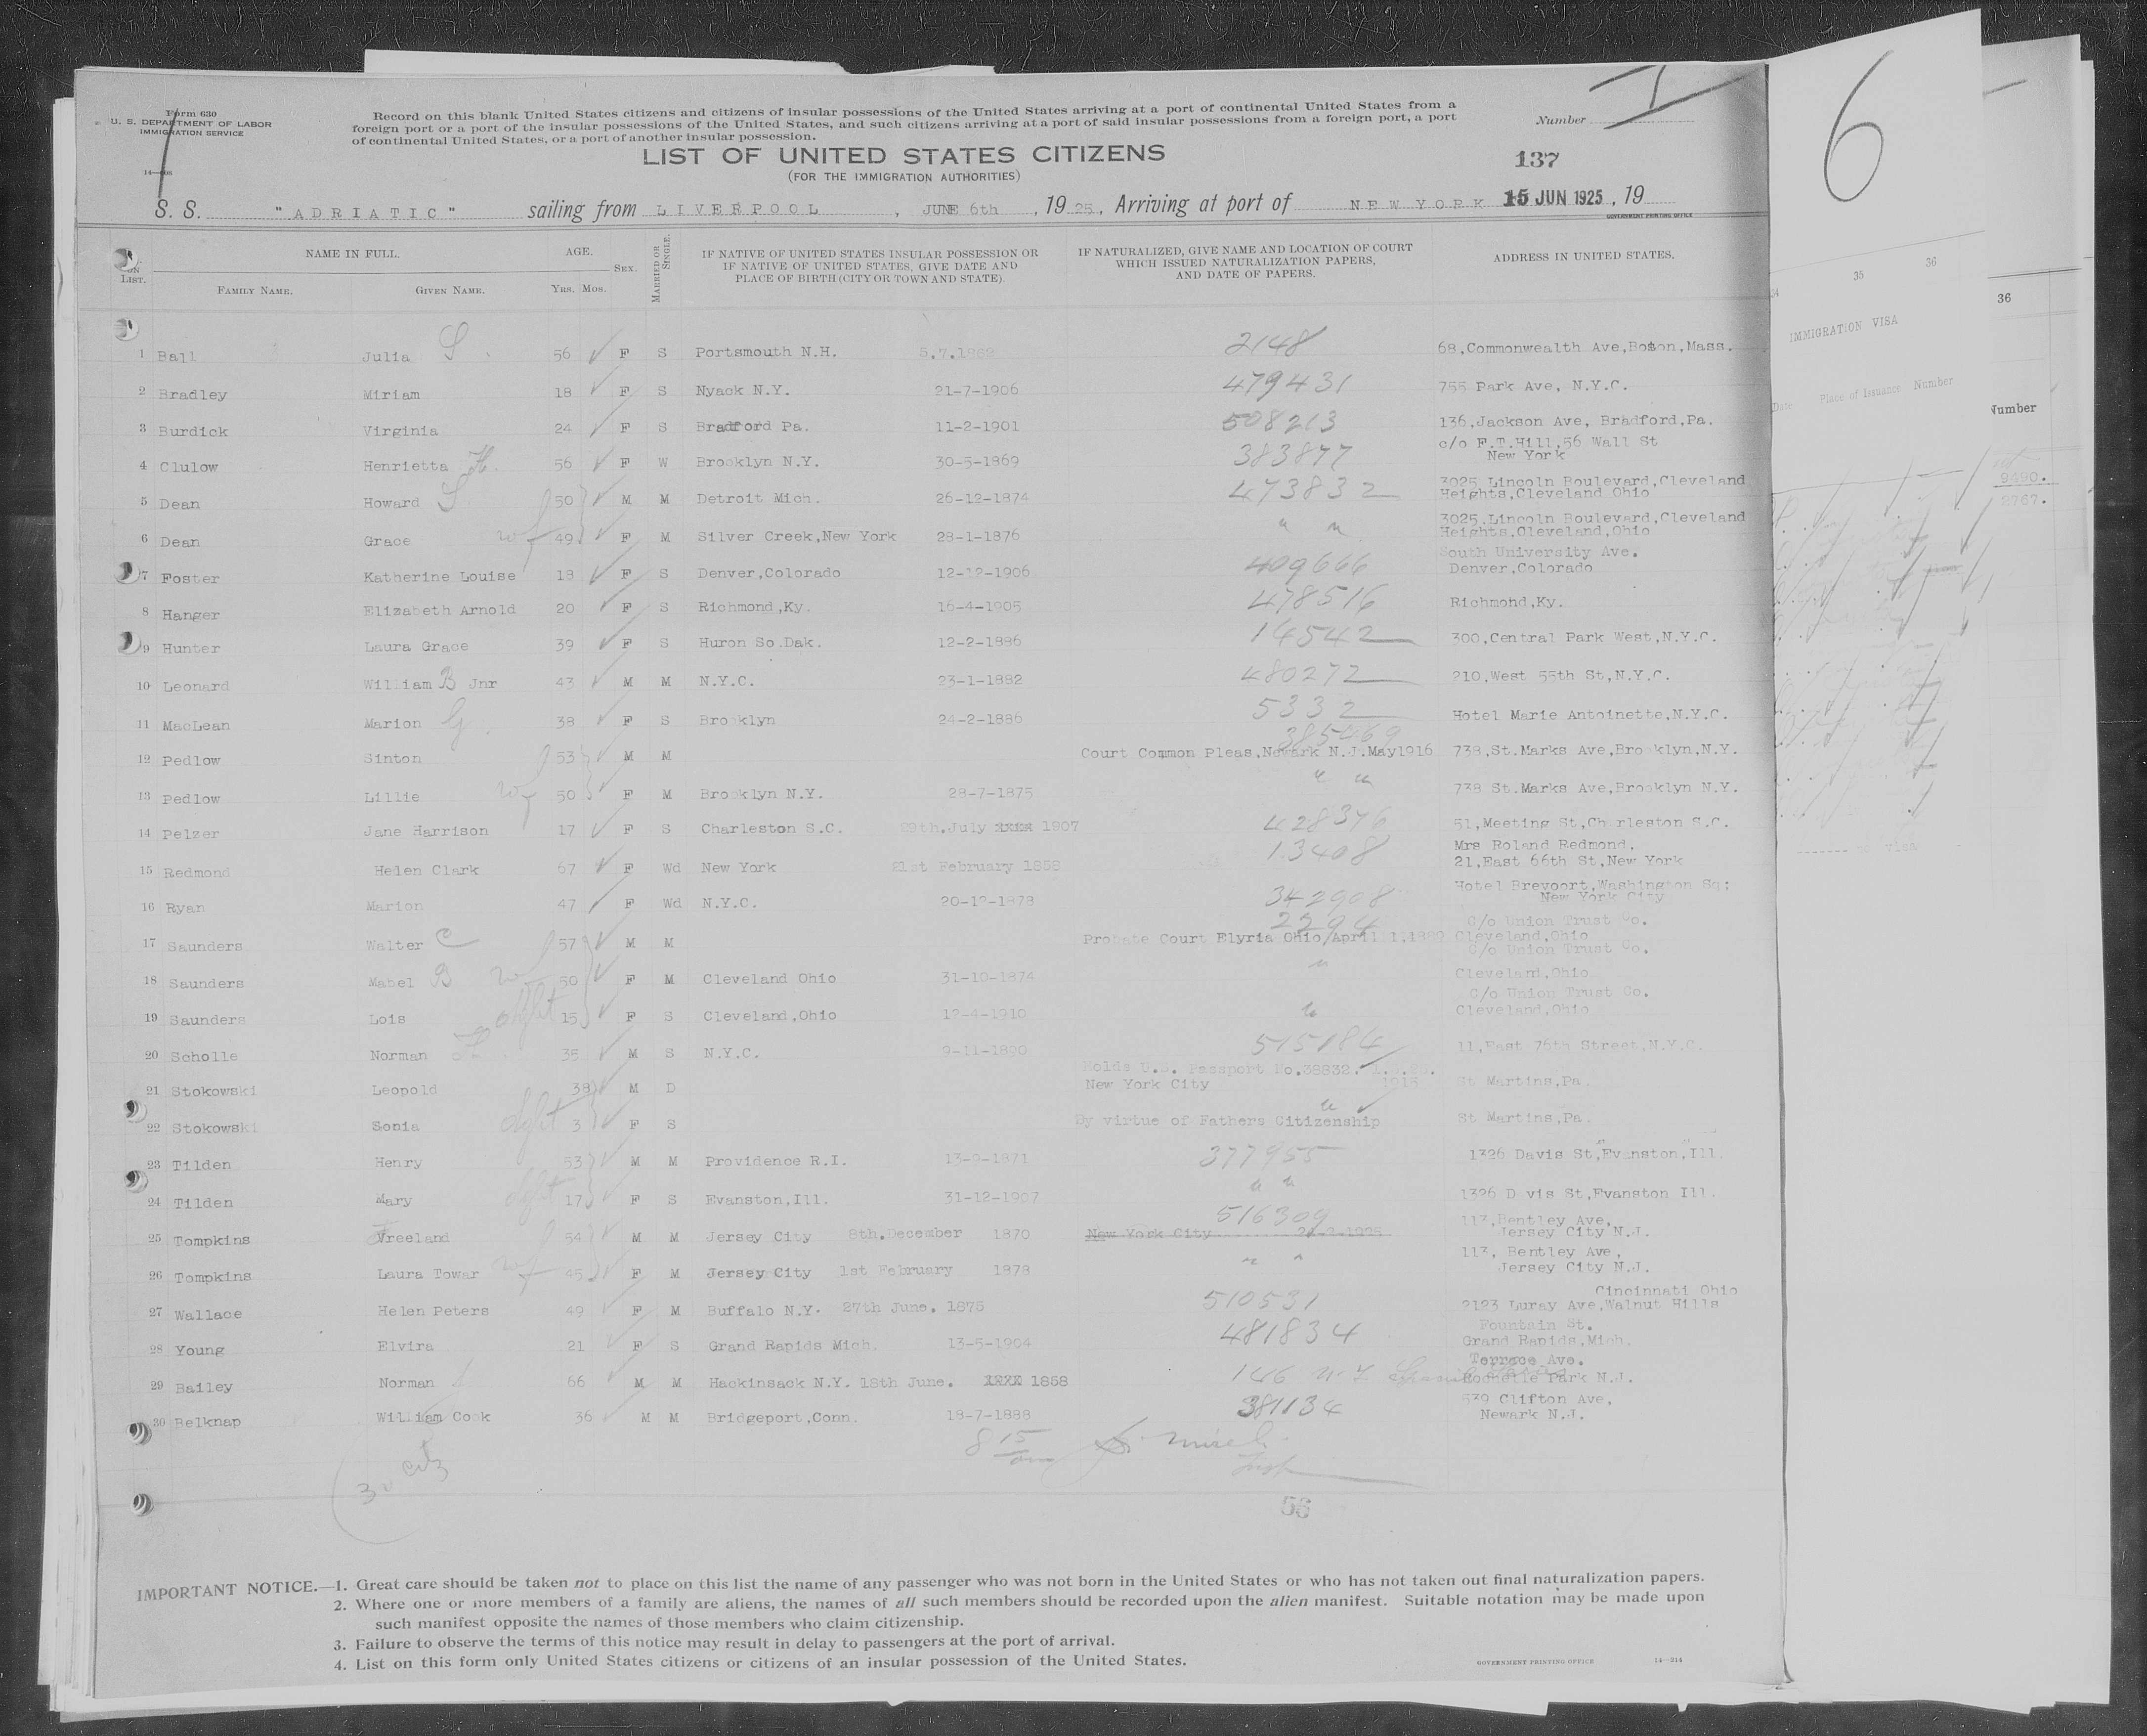 Form 630
U. S. DEPARTMENT OF LABOR
IMMIGRATION SERVICE
Record on this blank United States citizens and citizens of insular possessions of the United States arriving at a port of continental United States from a
foreign port or a port of the insular possessions of the United States, and such citizens arriving at a port of said insular possessions from a foreign port, a port
of continental United States, or a port of another insular possession.
Number I
6
LIST OF UNITED STATES CITIZENS
(FOR THE IMMIGRATION AUTHORITIES)
137
S. S. "ADRIATIC" sailing from LIVERPOOL, JUNE 6th, 1925, Arriving at port of NEW YORK 15 JUN 1925, 19
GOVERNMENT PRINTING OFFICE
LIST. NAME IN FULL. AGE. SEX. MARRIED OR SINGLE. IF NATIVE OF UNITED STATES INSULAR POSSESSION OR IF NATIVE OF UNITED STATES, GIVE DATE AND PLACE OF BIRTH (CITY OR TOWN AND STATE). IF NATURALIZED, GIVE NAME AND LOCATION OF COURT WHICH ISSUED NATURALIZATION PAPERS, AND DATE OF PAPERS. ADDRESS IN UNITED STATES.
FAMILY NAME. GIVEN NAME. YRS. MOS.
1 Ball Julia S. 56 F S Portsmouth N.H. 2148 68,Commonwealth Ave,Boston,Mass.
2 Bradley Miriam 18 F S Nyack N.Y. 21-7-1906 479431 755 Park Ave, N.Y.C.
3 Burdick Virginia 24 F S Bradford Pa. 11-2-1901 508213 136,Jackson Ave, Bradford,Pa.
4 Clulow Henrietta H. 56 F W Brooklyn N.Y. 30-5-1869 383877 c/o F.T.Hill,56 Wall St New York
5 Dean Howard S 50 M M Detroit Mich. 26-12-1874 473832 3025 Lincoln Boulevard,Cleveland Heights,Cleveland Ohio
6 Dean Grace wf 49 F M Silver Creek,New York 28-1-1876 " " 3025.Lincoln Boulevard,Cleveland Heights,Cleveland,Ohio
7 Foster Katherine Louise 18 F S Denver,Colorado 12-12-1906 409666 South University Ave. Denver,Colorado
8 Hanger Elizabeth Arnold 20 F S Richmond,Ky. 16-4-1905 478516 Richmond,Ky.
9 Hunter Laura Grace 39 F S Huron So.Dak. 12-2-1886 14542 300,Central Park West,N.Y.C.
10 Leonard William B Jnr 43 M M N.Y.C. 23-1-1882 480272 210,West 55th St,N.Y.C.
11 MacLean Marion G. 38 F S Brooklyn 24-2-1886 5332 Hotel Marie Antoinette,N.Y.C.
12 Pedlow Sinton 53 M M 385469 Court Common Pleas,Newark N.J.May1916 738,St.Marks Ave,Brooklyn,N.Y.
13 Pedlow Lillie wf 50 F M Brooklyn N.Y. 28-7-1875 " " 738 St.Marks Ave,Brooklyn N.Y.
14 Pelzer Jane Harrison 17 F S Charleston S.C. 29th.July 1907 428376 51,Meeting St,Charleston S.C.
15 Redmond Helen Clark 67 F Wd New York 21st February 1858 13408 Mrs Roland Redmond, 21,East 66th St,New York
16 Ryan Marion 47 F Wd N.Y.C. 20-12-1878 342908 Hotel Brevoort,Washington Sq: New York City
17 Saunders Walter C 57 M M 2294 Probate Court Elyria Ohio April 1,1889 C/o Union Trust Co. Cleveland,Ohio
18 Saunders Mabel B wf 50 F M Cleveland Ohio 31-10-1874 " C/o Union Trust Co. Cleveland,Ohio
19 Saunders Lois dght 15 F S Cleveland,Ohio 12-4-1910 " C/o Union Trust Co. Cleveland,Ohio
20 Scholle Norman 35 M S N.Y.C. 9-11-1890 515184 11,East 76th Street,N.Y.C.
21 Stokowski Leopold 38 M D Holds U.S. Passport No.38832. New York City 1915 St Martins,Pa.
22 Stokowski Sonia dght 3 F S By virtue of Fathers Citizenship St Martins,Pa.
23 Tilden Henry 53 M M Providence R.I. 13-9-1871 377955 1326 Davis St,Evanston,Ill.
24 Tilden Mary dght 17 F S Evanston,Ill. 31-12-1907 " " 1326 Davis St,Evanston Ill.
25 Tompkins Vreeland 54 M M Jersey City 8th.December 1870 516309 New York City 113,Bentley Ave, Jersey City N.J.
26 Tompkins Laura Towar wf 45 F M Jersey City 1st February 1878 " " 113, Bentley Ave, Jersey City N.J.
27 Wallace Helen Peters 49 F M Buffalo N.Y. 27th June. 1875 510531 Cincinnati Ohio 2123 Luray Ave,Walnut Hills
28 Young Elvira 21 F S Grand Rapids Mich. 13-5-1904 481834 Fountain St. Grand Rapids,Mich.
29 Bailey Norman 66 M M Hackinsack N.Y. 18th June. 1858 146 Terrace Ave. Rochelle Park N.J.
30 Belknap William Cook 36 M M Bridgeport,Conn. 18-7-1888 381134 539 Clifton Ave, Newark N.J.
8 15
30 citz
53
IMPORTANT NOTICE.—1. Great care should be taken not to place on this list the name of any passenger who was not born in the United States or who has not taken out final naturalization papers.
2. Where one or more members of a family are aliens, the names of all such members should be recorded upon the alien manifest. Suitable notation may be made upon
such manifest opposite the names of those members who claim citizenship.
3. Failure to observe the terms of this notice may result in delay to passengers at the port of arrival.
4. List on this form only United States citizens or citizens of an insular possession of the United States.
GOVERNMENT PRINTING OFFICE 14—314
34 35 36
IMMIGRATION VISA
Date Place of Issuance Number
no visa
36
Number
9490.
2767.